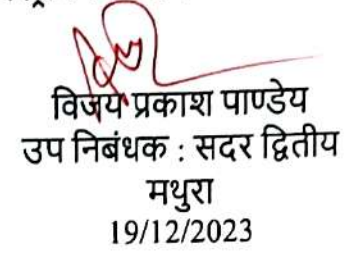 विजय प्रकाश पाण्डेय
उप निबंधक : सदर द्वितीय
मथुरा
19/12/2023